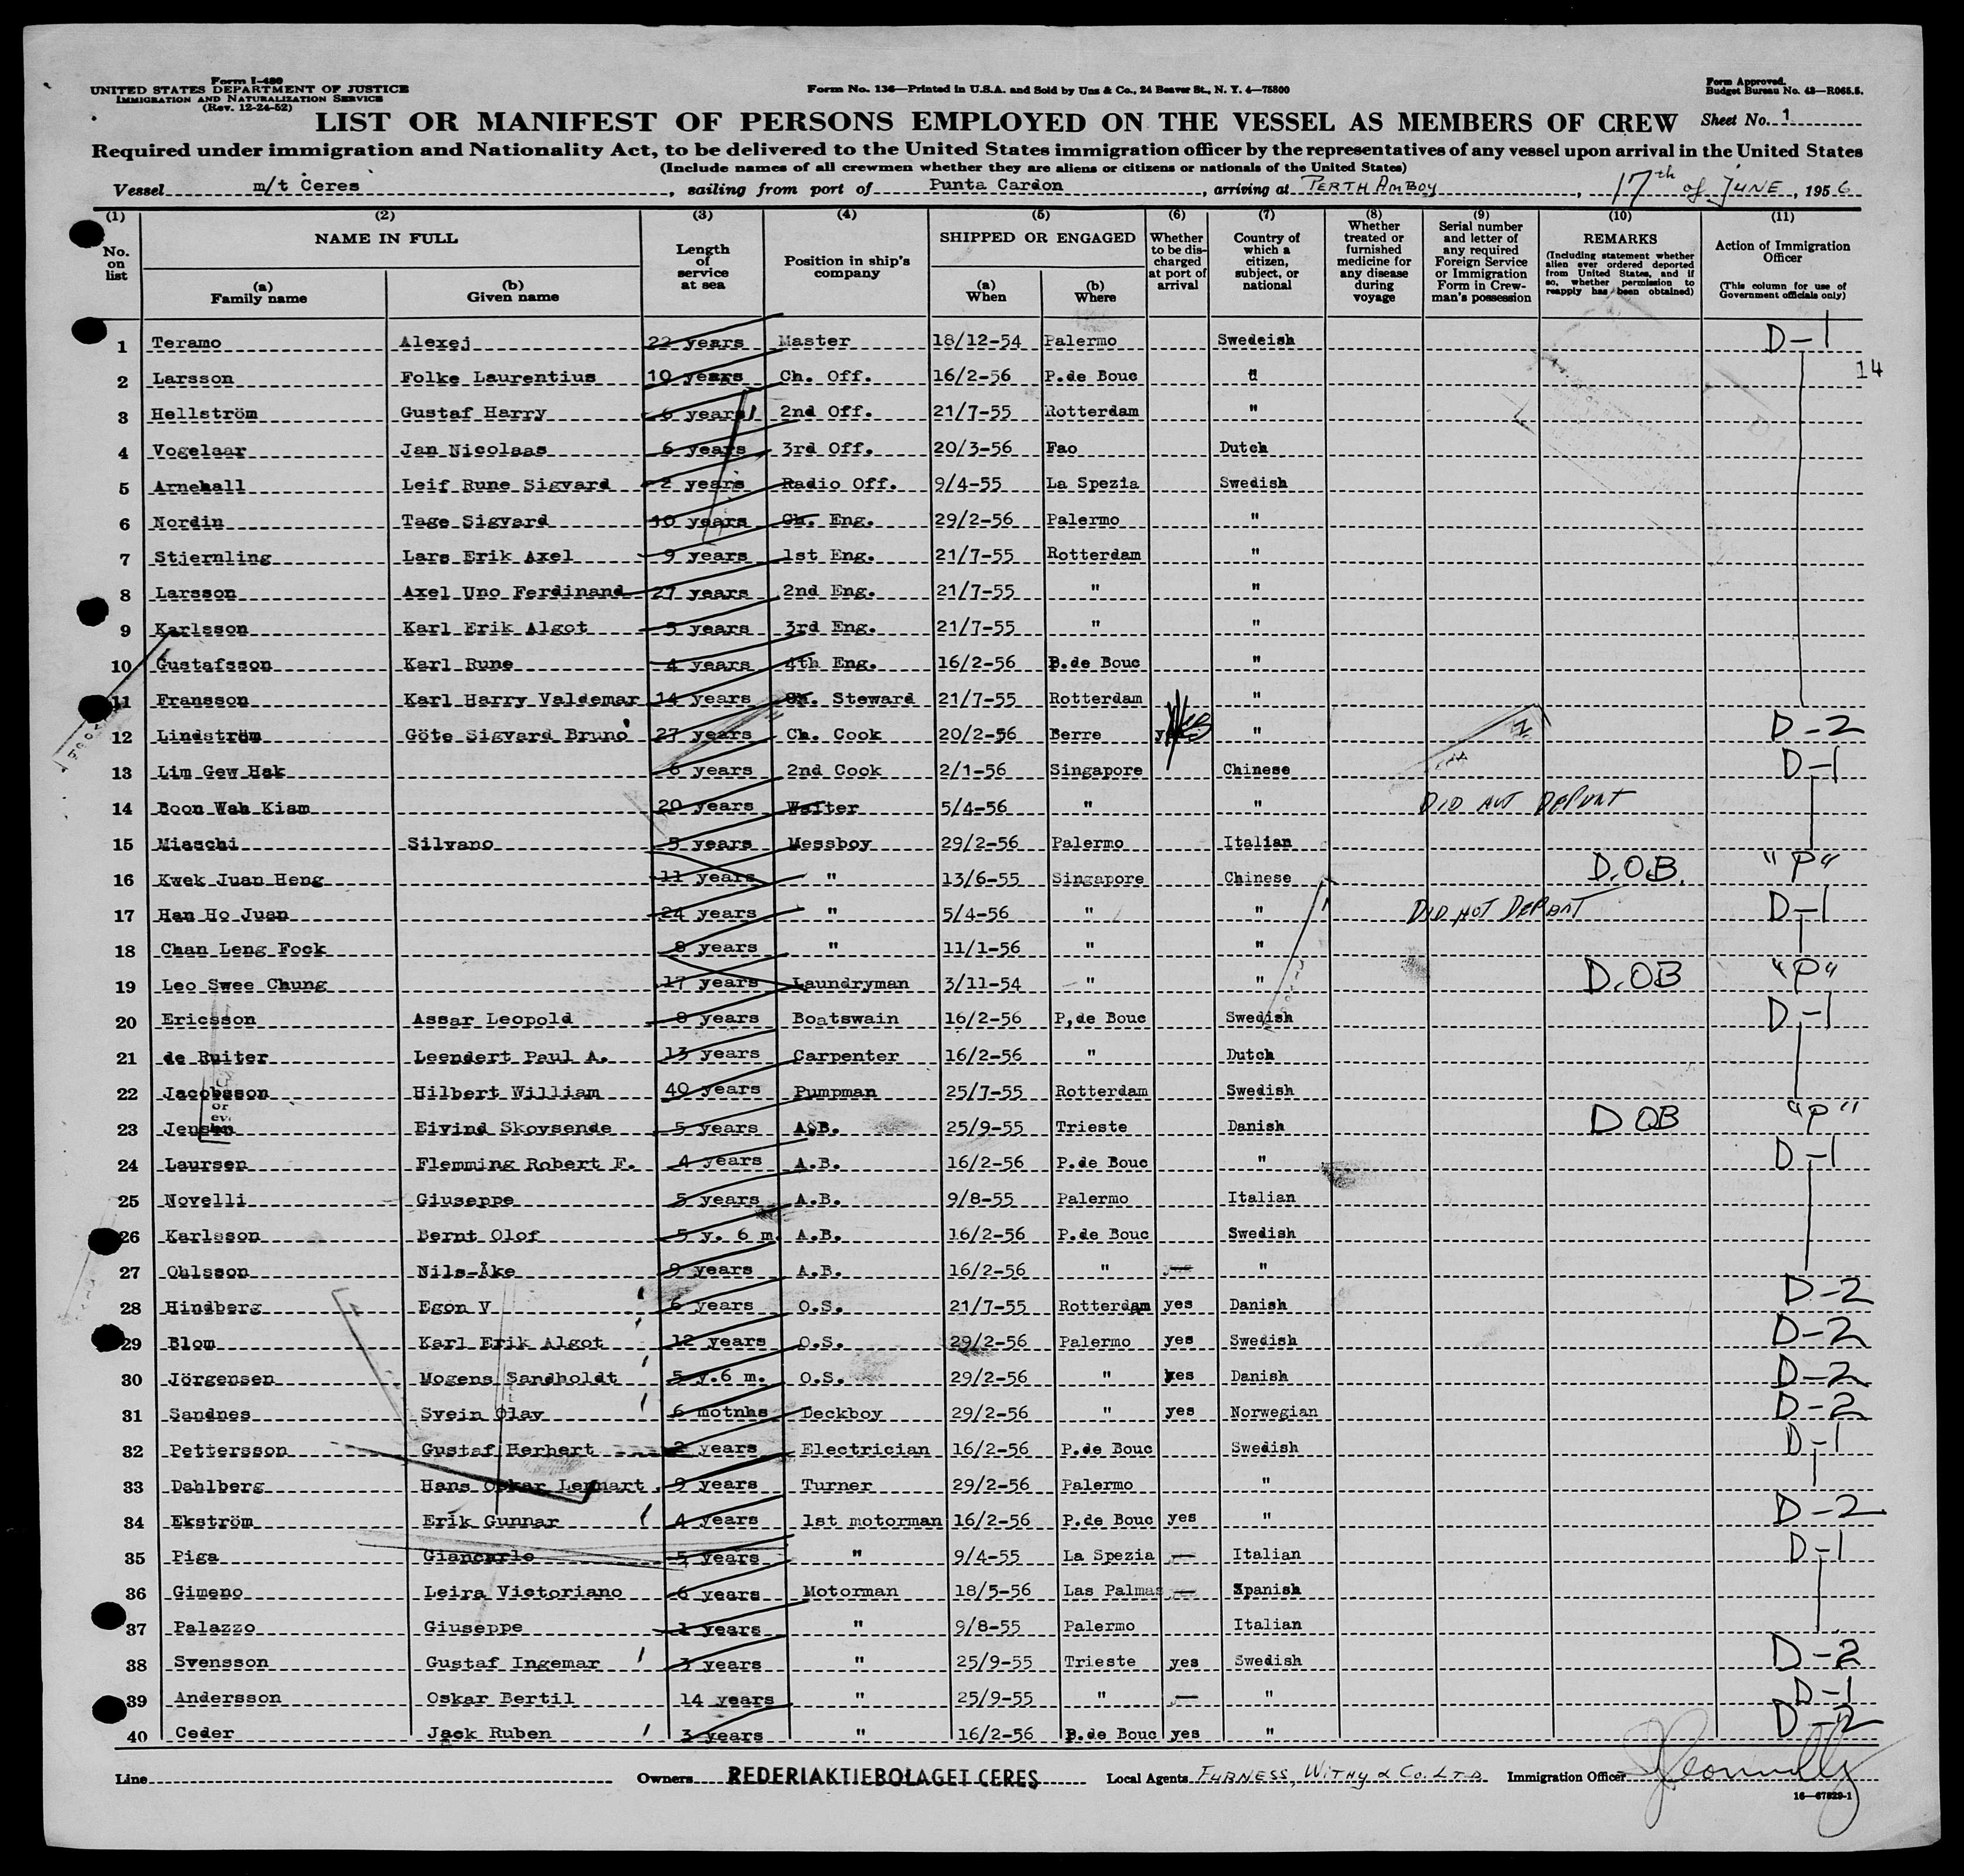 Form I-480
UNITED STATES DEPARTMENT OF JUSTICE
IMMIGRATION AND NATURALIZATION SERVICE
(Rev. 12-24-52)
Form No. 136—Printed in U.S.A. and Sold by Unz & Co., 24 Beaver St., N. Y. 4—75800
Form Approved.
Budget Bureau No. 43—R065.5.
LIST OR MANIFEST OF PERSONS EMPLOYED ON THE VESSEL AS MEMBERS OF CREW Sheet No. 1
Required under immigration and Nationality Act, to be delivered to the United States immigration officer by the representatives of any vessel upon arrival in the United States
(Include names of all crewmen whether they are aliens or citizens or nationals of the United States)
Vessel m/t Ceres, sailing from port of Punta Cardon, arriving at PERTH AMBOY, 17th of JUNE, 1956
(1) No. on list
(2) NAME IN FULL
(a) Family name
(b) Given name
(3) Length of service at sea
(4) Position in ship's company
(5) SHIPPED OR ENGAGED
(a) When
(b) Where
(6) Whether to be discharged at port of arrival
(7) Country of which a citizen, subject, or national
(8) Whether treated or furnished medicine for any disease during voyage
(9) Serial number and letter of any required Foreign Service or Immigration Form in Crewman's possession
(10) REMARKS (Including statement whether alien ever ordered deported from United States, and if so, whether permission to reapply has been obtained)
(11) Action of Immigration Officer (This column for use of Government officials only)
1 Teramo Alexej 22 years Master 18/12-54 Palermo Swedeish D-1
2 Larsson Folke Laurentius 10 years Ch. Off. 16/2-56 P.de Bouc " 14
3 Hellström Gustaf Harry 6 years 2nd Off. 21/7-55 Rotterdam "
4 Vogelaar Jan Nicolaas 6 years 3rd Off. 20/3-56 Fao Dutch
5 Arnehall Leif Rune Sigvard 2 years Radio Off. 9/4-55 La Spezia Swedish
6 Nordin Tage Sigvard 10 years Ch. Eng. 29/2-56 Palermo "
7 Stjernling Lars Erik Axel 9 years 1st Eng. 21/7-55 Rotterdam "
8 Larsson Axel Uno Ferdinand 27 years 2nd Eng. 21/7-55 " "
9 Karlsson Karl Erik Algot 5 years 3rd Eng. 21/7-55 " "
10 Gustafsson Karl Rune 4 years 4th Eng. 16/2-56 P.de Bouc "
11 Fransson Karl Harry Valdemar 14 years Ch. Steward 21/7-55 Rotterdam "
12 Lindström Göte Sigvard Bruno 27 years Ch. Cook 20/2-56 Berre yes " D-2
13 Lim Gew Hak 6 years 2nd Cook 2/1-56 Singapore Chinese D-1
14 Boon Wah Kiam 20 years Waiter 5/4-56 " " DID NOT DEPART
15 Miaschi Silvano 5 years Messboy 29/2-56 Palermo Italian
16 Kwek Juan Heng 11 years " 13/6-55 Singapore Chinese D.O.B. "P"
17 Han Ho Juan 24 years " 5/4-56 " " DID NOT DEPART D-1
18 Chan Leng Fock 8 years " 11/1-56 " "
19 Leo Swee Chung 17 years Laundryman 3/11-54 " " D.OB "P"
20 Ericsson Assar Leopold 8 years Boatswain 16/2-56 P,de Bouc Swedish D-1
21 de Ruiter Leendert Paul A. 13 years Carpenter 16/2-56 " Dutch
22 Jacobsson Hilbert William 40 years Pumpman 25/7-55 Rotterdam Swedish
23 Jensen Eivind Skovsende 5 years A.B. 25/9-55 Trieste Danish DOB "P"
24 Laursen Flemming Robert F. 4 years A.B. 16/2-56 P.de Bouc " D-1
25 Novelli Giuseppe 5 years A.B. 9/8-55 Palermo Italian
26 Karlsson Bernt Olof 5 y. 6 m. A.B. 16/2-56 P.de Bouc Swedish
27 Ohlsson Nils-Åke 9 years A.B. 16/2-56 " "
28 Hindberg Egon V 6 years O.S. 21/7-55 Rotterdam yes Danish D-2
29 Blom Karl Erik Algot 12 years O.S. 29/2-56 Palermo yes Swedish D-2
30 Jörgensen Mogens Sandholdt 5 y.6 m. O.S. 29/2-56 " yes Danish D-2
31 Sandnes Svein Olav 6 motnhs Deckboy 29/2-56 " yes Norwegian D-2
32 Pettersson Gustaf Herbert 2 years Electrician 16/2-56 P.de Bouc Swedish D-1
33 Dahlberg Hans Oskar Lennart 9 years Turner 29/2-56 Palermo "
34 Ekström Erik Gunnar 4 years 1st motorman 16/2-56 P.de Bouc yes " D-2
35 Piga Giancarlo 5 years " 9/4-55 La Spezia Italian D-1
36 Gimeno Leira Victoriano 6 years Motorman 18/5-56 Las Palmas Spanish
37 Palazzo Giuseppe 1 years " 9/8-55 Palermo Italian
38 Svensson Gustaf Ingemar 3 years " 25/9-55 Trieste yes Swedish D-2
39 Andersson Oskar Bertil 14 years " 25/9-55 " — " D-1
40 Ceder Jack Ruben 3 years " 16/2-56 P.de Bouc yes " D-2
Line Owners REDERIAKTIEBOLAGET CERES Local Agents FURNESS, WITHY & CO. LTD Immigration Officer
16—67829-1